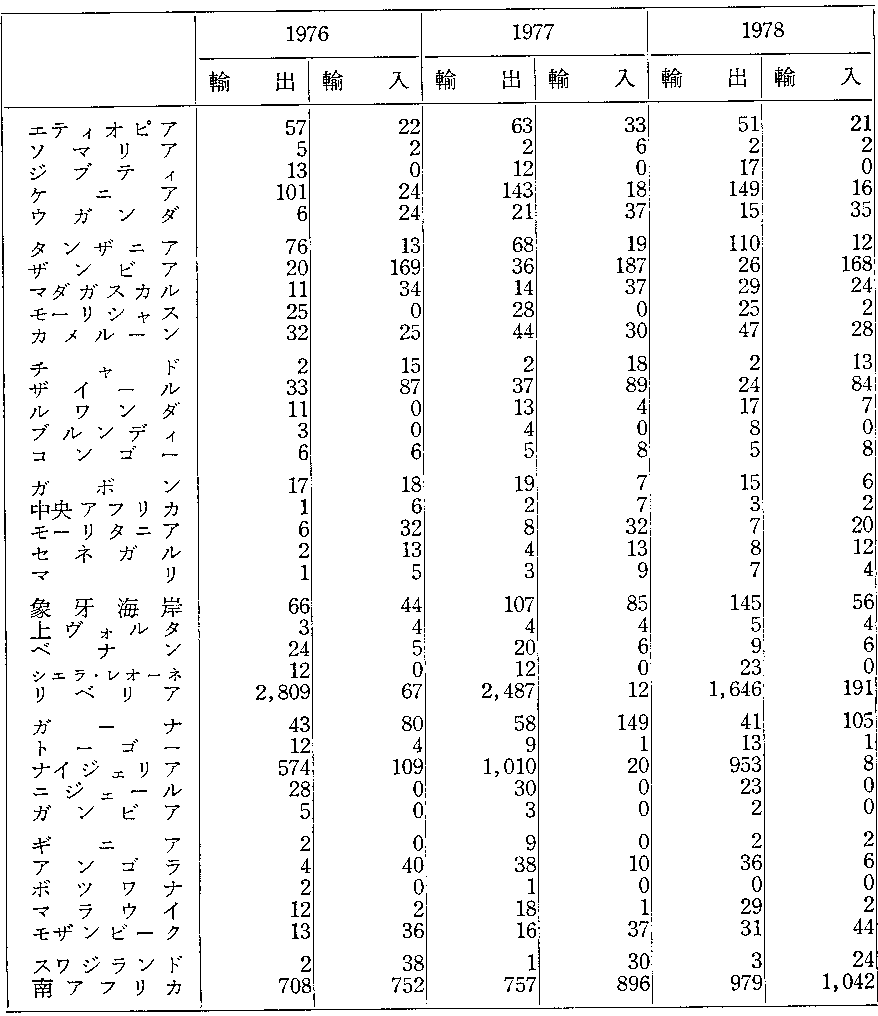 1976 1977 1978
輸出 輸入 輸出 輸入 輸出 輸入
エティオピア 57 22 63 33 51 21
ソマリア 5 2 2 6 2 2
ジブティ 13 0 12 0 17 0
ケニア 101 24 143 18 149 16
ウガンダ 6 24 21 37 15 35
タンザニア 76 13 68 19 110 12
ザンビア 20 169 36 187 26 168
マダガスカル 11 34 14 37 29 24
モーリシャス 25 0 28 0 25 2
カメルーン 32 25 44 30 47 28
チャド 2 15 2 18 2 13
ザイール 33 87 37 89 24 84
ルワンダ 11 0 13 4 17 7
ブルンディ 3 0 4 0 8 0
コンゴー 6 6 5 8 5 8
ガボン 17 18 19 7 15 6
中央アフリカ 1 6 2 7 3 2
モーリタニア 6 32 8 32 7 20
セネガル 2 13 4 13 8 12
マリ 1 5 3 9 7 4
象牙海岸 66 44 107 85 145 56
上ヴォルタ 3 4 4 4 5 4
ベナン 24 5 20 6 9 6
シエラ・レオーネ 12 0 12 0 23 0
リベリア 2,809 67 2,487 12 1,646 191
ガーナ 43 80 58 149 41 105
トーゴー 12 4 9 1 13 1
ナイジェリア 574 109 1,010 20 953 8
ニジェール 28 0 30 0 23 0
ガンビア 5 0 3 0 2 0
ギニア 2 0 9 0 2 2
アンゴラ 4 40 38 10 36 6
ボツワナ 2 0 1 0 0 0
マラウイ 12 2 18 1 29 2
モザンビーク 13 36 16 37 31 44
スワジランド 2 38 1 30 3 24
南アフリカ 708 752 757 896 979 1,042